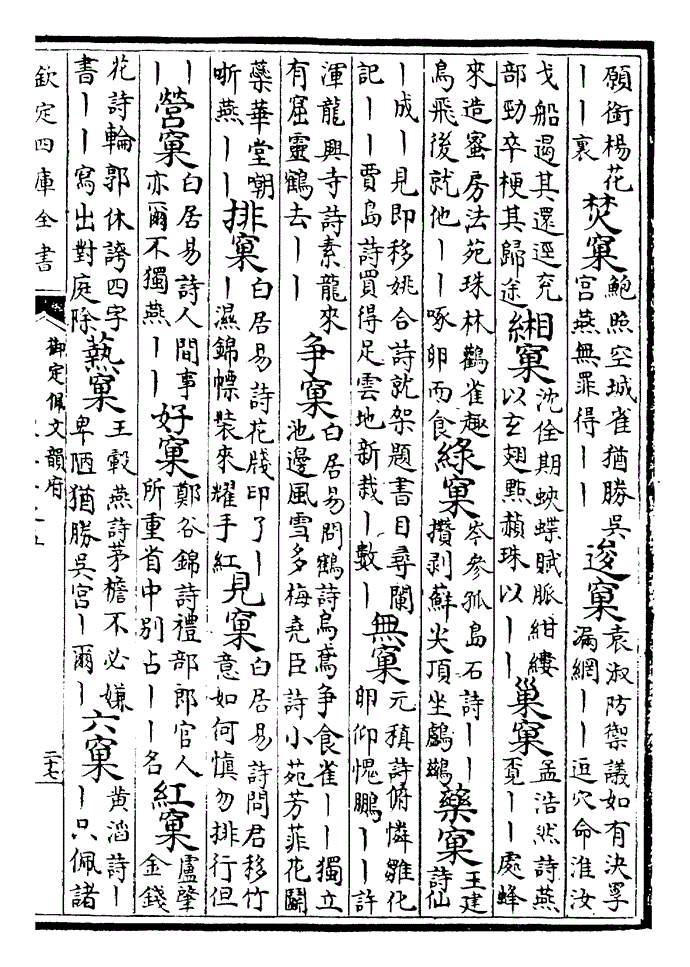 願銜楊花丨丨裏 焚窠 鮑照空城雀猶勝吳宮燕無罪得丨丨 逡窠 袁淑防禦議如有決罘漏網丨丨逗穴命淮汝
戈船遏其還逕兖部勁卒梗其歸途 緗窠 沈佺期蛺蝶賦脈紺縷以玄翅㸃赬珠以丨丨 巢窠 孟浩然詩燕覔丨丨處蜂
來造蜜房法苑珠林鸛雀趣鳥飛後就他丨丨啄卵而食 綠窠 岑參孤島石詩丨丨攢剥蘇尖頂坐鸕鷀 藥窠 王建詩仙
丨成丨見即移姚合詩就架題書目尋闌記丨丨賈島詩買得足雲地新栽丨數丨 無窠 元稹詩俯憐雛化卵仰愧鵬丨丨許
渾龍興寺詩素龍來有窟靈鶴去丨丨 争窠 白居易問鶴詩烏鳶争食雀丨丨獨立池邊風雪多梅堯臣詩小苑芳菲花鬭
藥華堂嘲哳燕丨丨 排窠 白居易詩花牋印了丨丨濕錦幖装來耀手紅 見窠 白居易詩問君移竹意如何慎勿排行但
丨丨 營窠 白居易詩人間事亦爾不獨燕丨丨 好窠 鄭谷錦詩禮部郎官人所重省中别占丨丨名 紅窠 盧肇金錢
花詩輪郭休誇四字書丨丨寫出對庭除 爇窠 王轂燕詩茅檐不必嫌卑陋猶勝吳宮丨爾丨 六窠 黄滔詩丨丨只佩諸
欽定四庫全書
御定佩文韻府
二十七